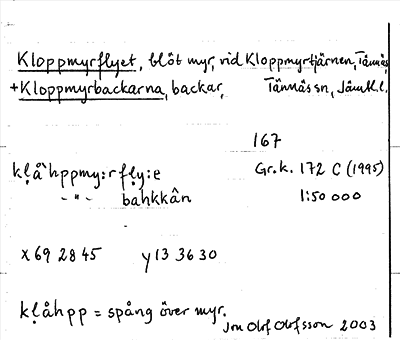 Kloppmyrflyet, blöt myr, vid Kloppmyrtjärnen, Tännäs,
+Kloppmyrbackarna, backar, Tännäs sn, Jämtl. l.
167
kḷå`hppmy:rfḷy:e Gr.k. 172 C (1995)
- " - bahkkân 1:50 000
x 69 28 45 y 13 36 30
kḷåhpp = spång över myr.
Jon Olof Olofsson 2003